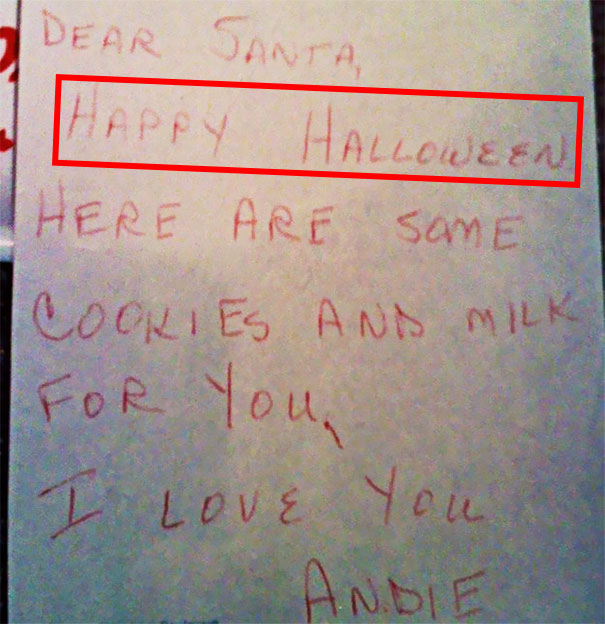 DEAR SANTA,
HAPPY HALLOWEEN
HERE ARE SOME
COOKIES AND MILK
FOR YOU,
I LOVE YOU
ANDIE